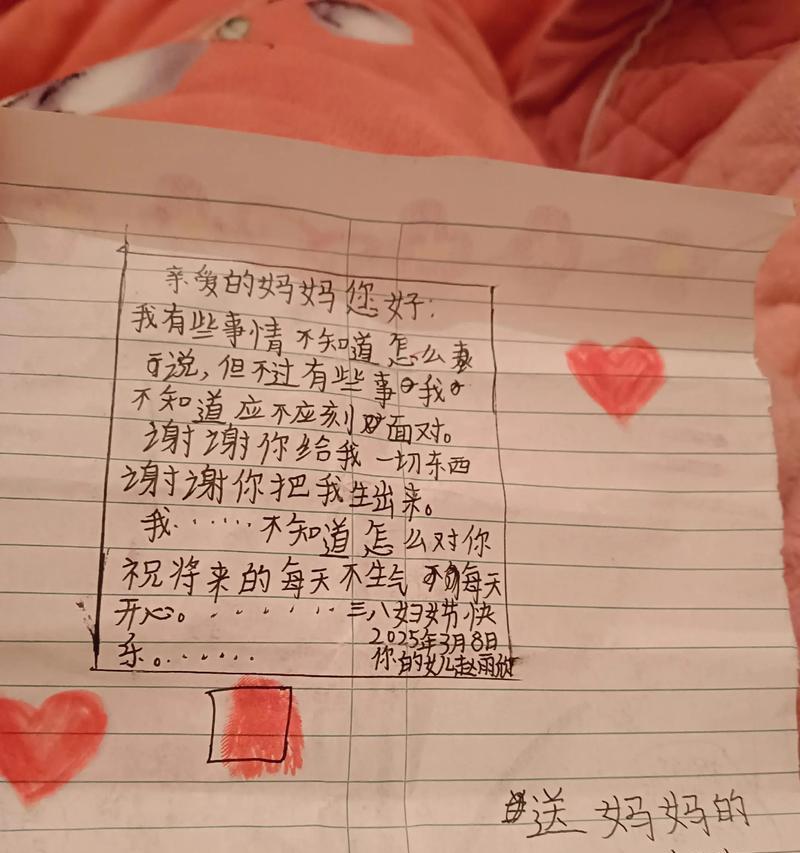 亲爱的妈妈您好:
我有些事情不知道怎么表
可说,但不过有些事我
不知道应不应刻面对。
谢谢你给我一切东西
谢谢你把我生出来。
我······不知道怎么对你
祝将来的每天不生气每天
开心。·······三八妇女节快
乐。······
2025年3月8日
你的女儿赵丽欣
送妈妈的